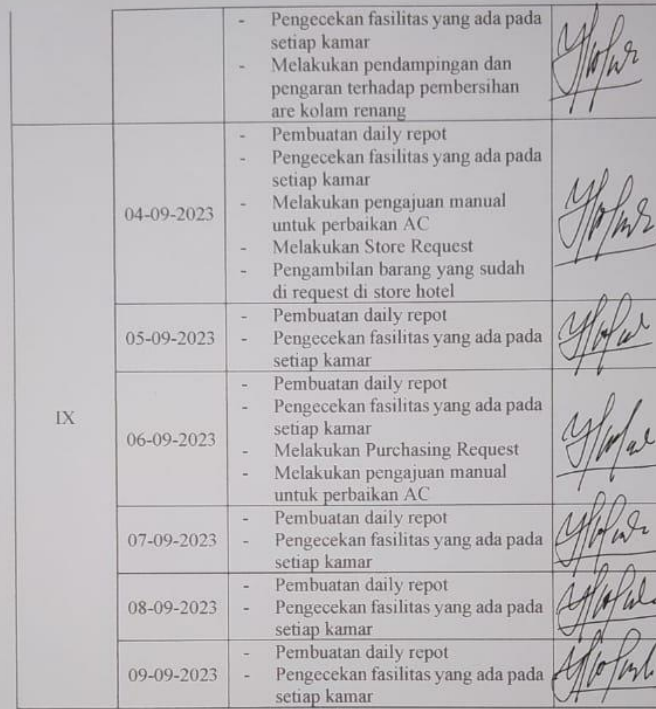 - Pengecekan fasilitas yang ada pada
setiap kamar
- Melakukan pendampingan dan
pengaran terhadap pembersihan
are kolam renang
IX
04-09-2023
- Pembuatan daily repot
- Pengecekan fasilitas yang ada pada
setiap kamar
- Melakukan pengajuan manual
untuk perbaikan AC
- Melakukan Store Request
- Pengambilan barang yang sudah
di request di store hotel
05-09-2023
- Pembuatan daily repot
- Pengecekan fasilitas yang ada pada
setiap kamar
06-09-2023
- Pembuatan daily repot
- Pengecekan fasilitas yang ada pada
setiap kamar
- Melakukan Purchasing Request
- Melakukan pengajuan manual
untuk perbaikan AC
07-09-2023
- Pembuatan daily repot
- Pengecekan fasilitas yang ada pada
setiap kamar
08-09-2023
- Pembuatan daily repot
- Pengecekan fasilitas yang ada pada
setiap kamar
09-09-2023
- Pembuatan daily repot
- Pengecekan fasilitas yang ada pada
setiap kamar